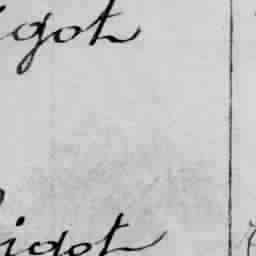 igot
igot